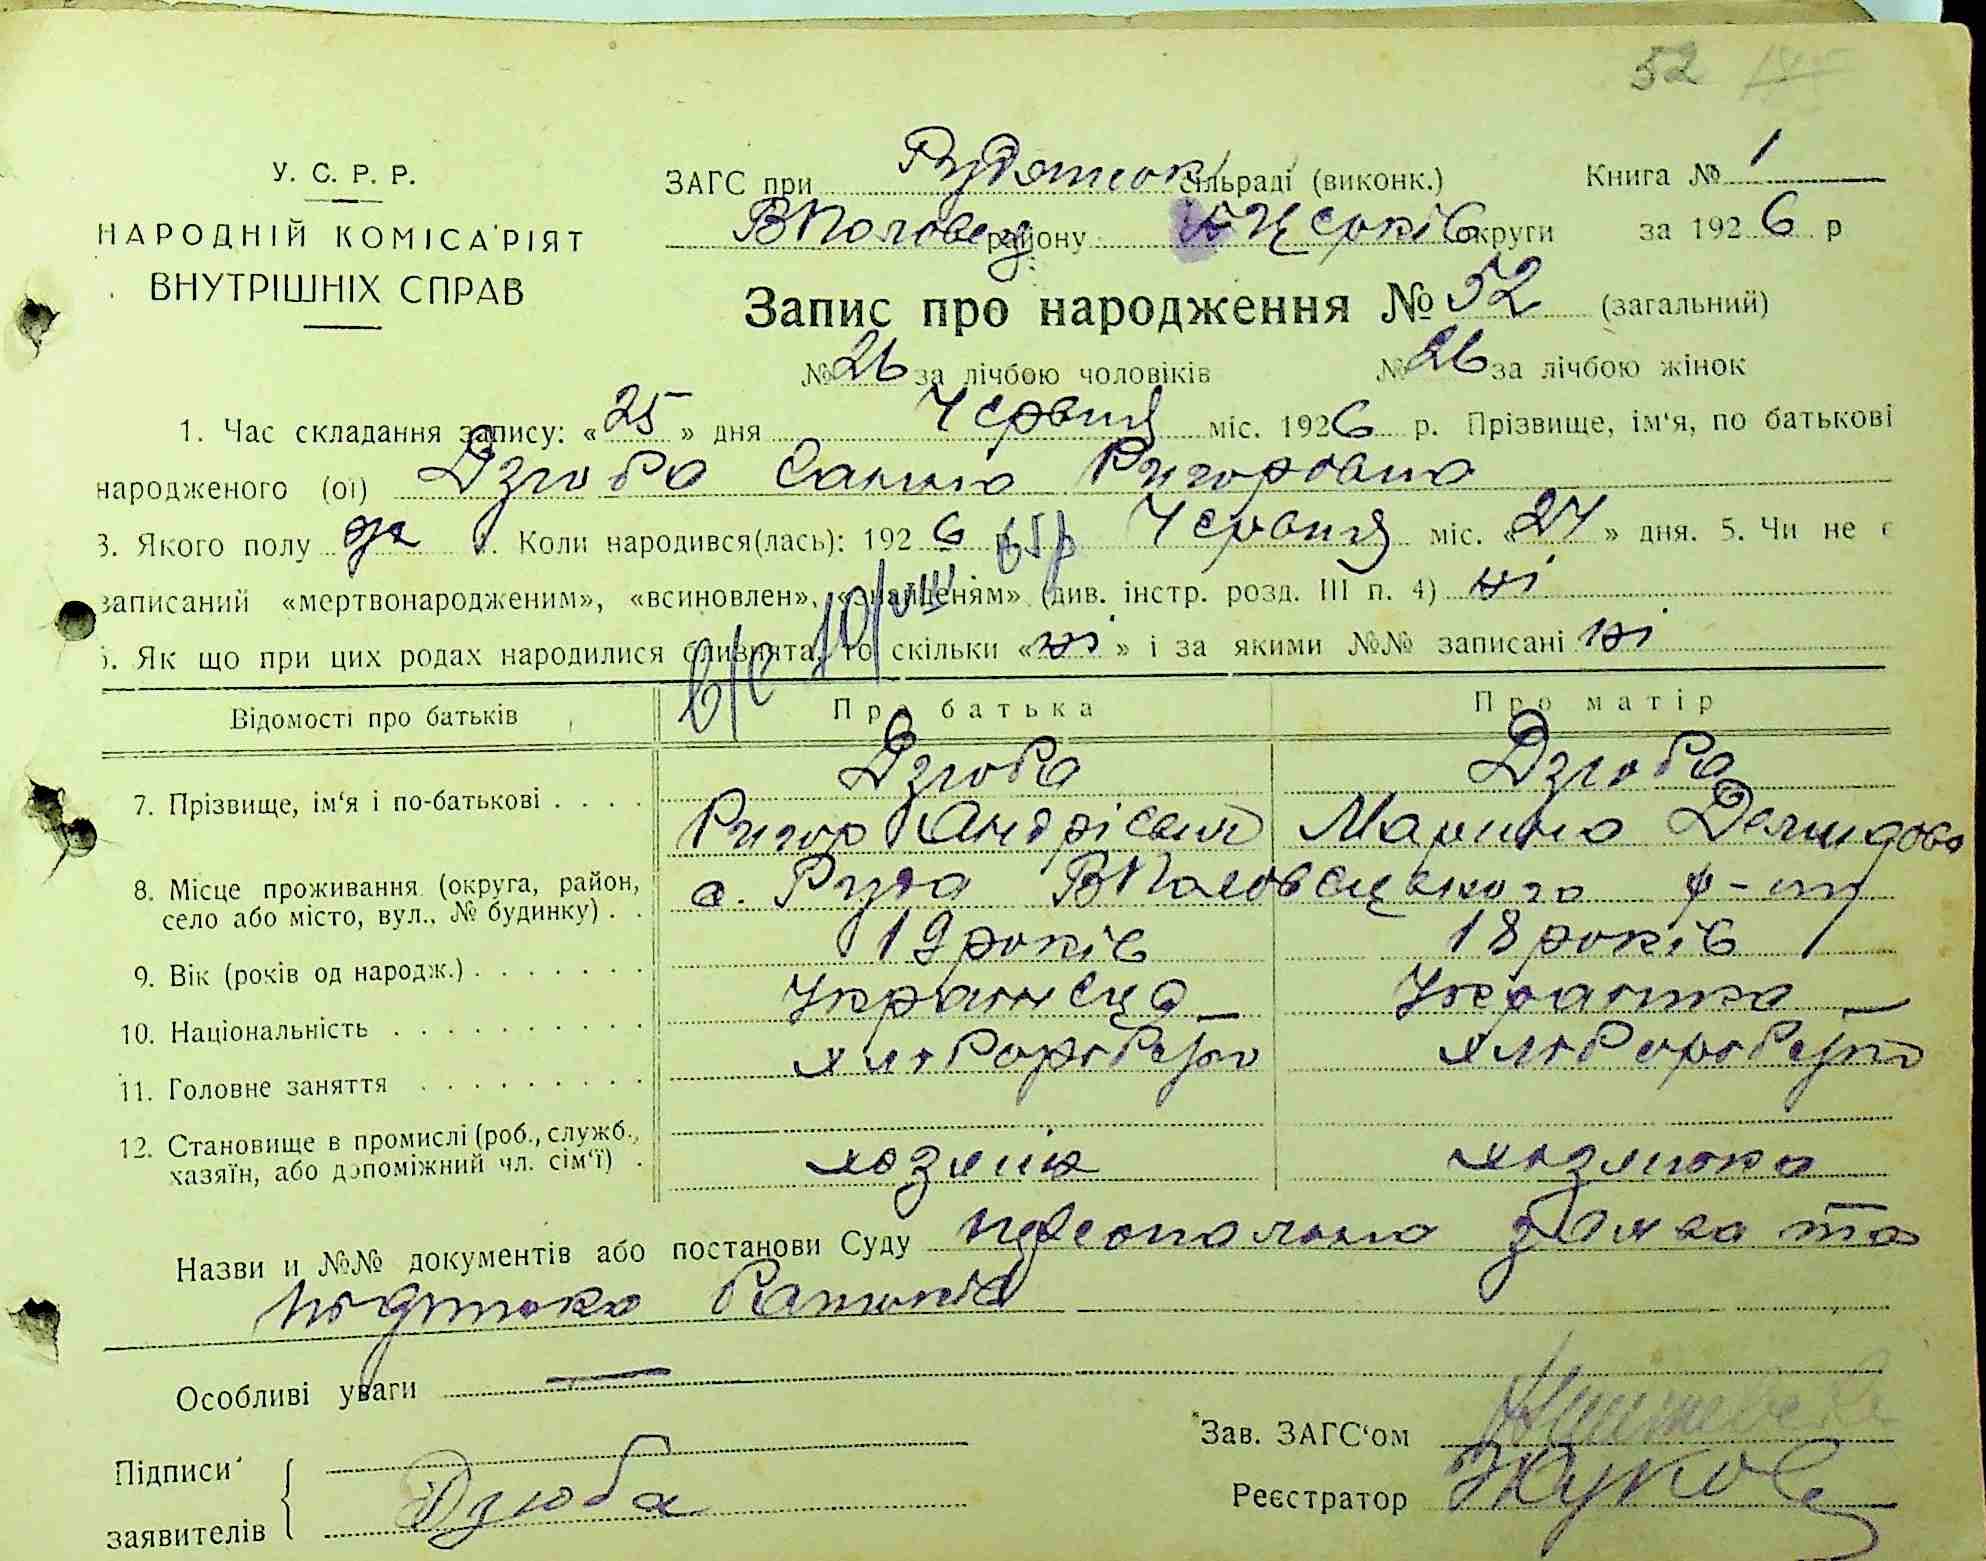 52
У. С. Р. Р.
НАРОДНІЙ КОМІСА'РІЯТ
ВНУТРІШНІХ СПРАВ
ЗАГС при Рудянськ сільраді (виконк.) Книга № 1
ВПоловец району БЦерків округи за 1926 р
Запис про народження № 52 (загальний)
№ 26 за лічбою чоловіків № 26 за лічбою жінок
1. Час складання запису: «25» дня Червня міс. 1926 р. Прізвище, ім'я, по батькові
народженого (ої) Дзюба Ганна Ригоровна
3. Якого полу ж . Коли народився(лась): 1926 р. Червня міс. «24» дня. 5. Чи не є
записаний «мертвонародженим», «всиновлен», «знайденям» (див. інстр. розд. III п. 4) ні
6. Як що при цих родах народилися близнята, то скільки «ні» і за якими №№ записані ні
Відомості про батьків Про батька Про матір
7. Прізвище, ім'я і по-батькові . . . . Дзюба Дзюба
Ригор Андрієвич Марина Демидова
8. Місце проживання (округа, район, село або місто, вул., № будинку) . . с. Руда ВПоловецького р-ну
9. Вік (років од народж.) . . . . . . . 19 років 18 років
10. Національність . . . . . . . . . . . Українець Українка
11. Головне заняття . . . . . . . . . хлібороб хлібороб
12. Становище в промислі (роб., служб., хазяїн, або допоміжний чл. сім'ї) . хозяїн хозяйка
Назви и №№ документів або постанови Суду персональна заява та
батьків
Особливі уваги —
Зав. ЗАГС'ом
Підписи заявителів Дзюба
Реєстратор Жуков